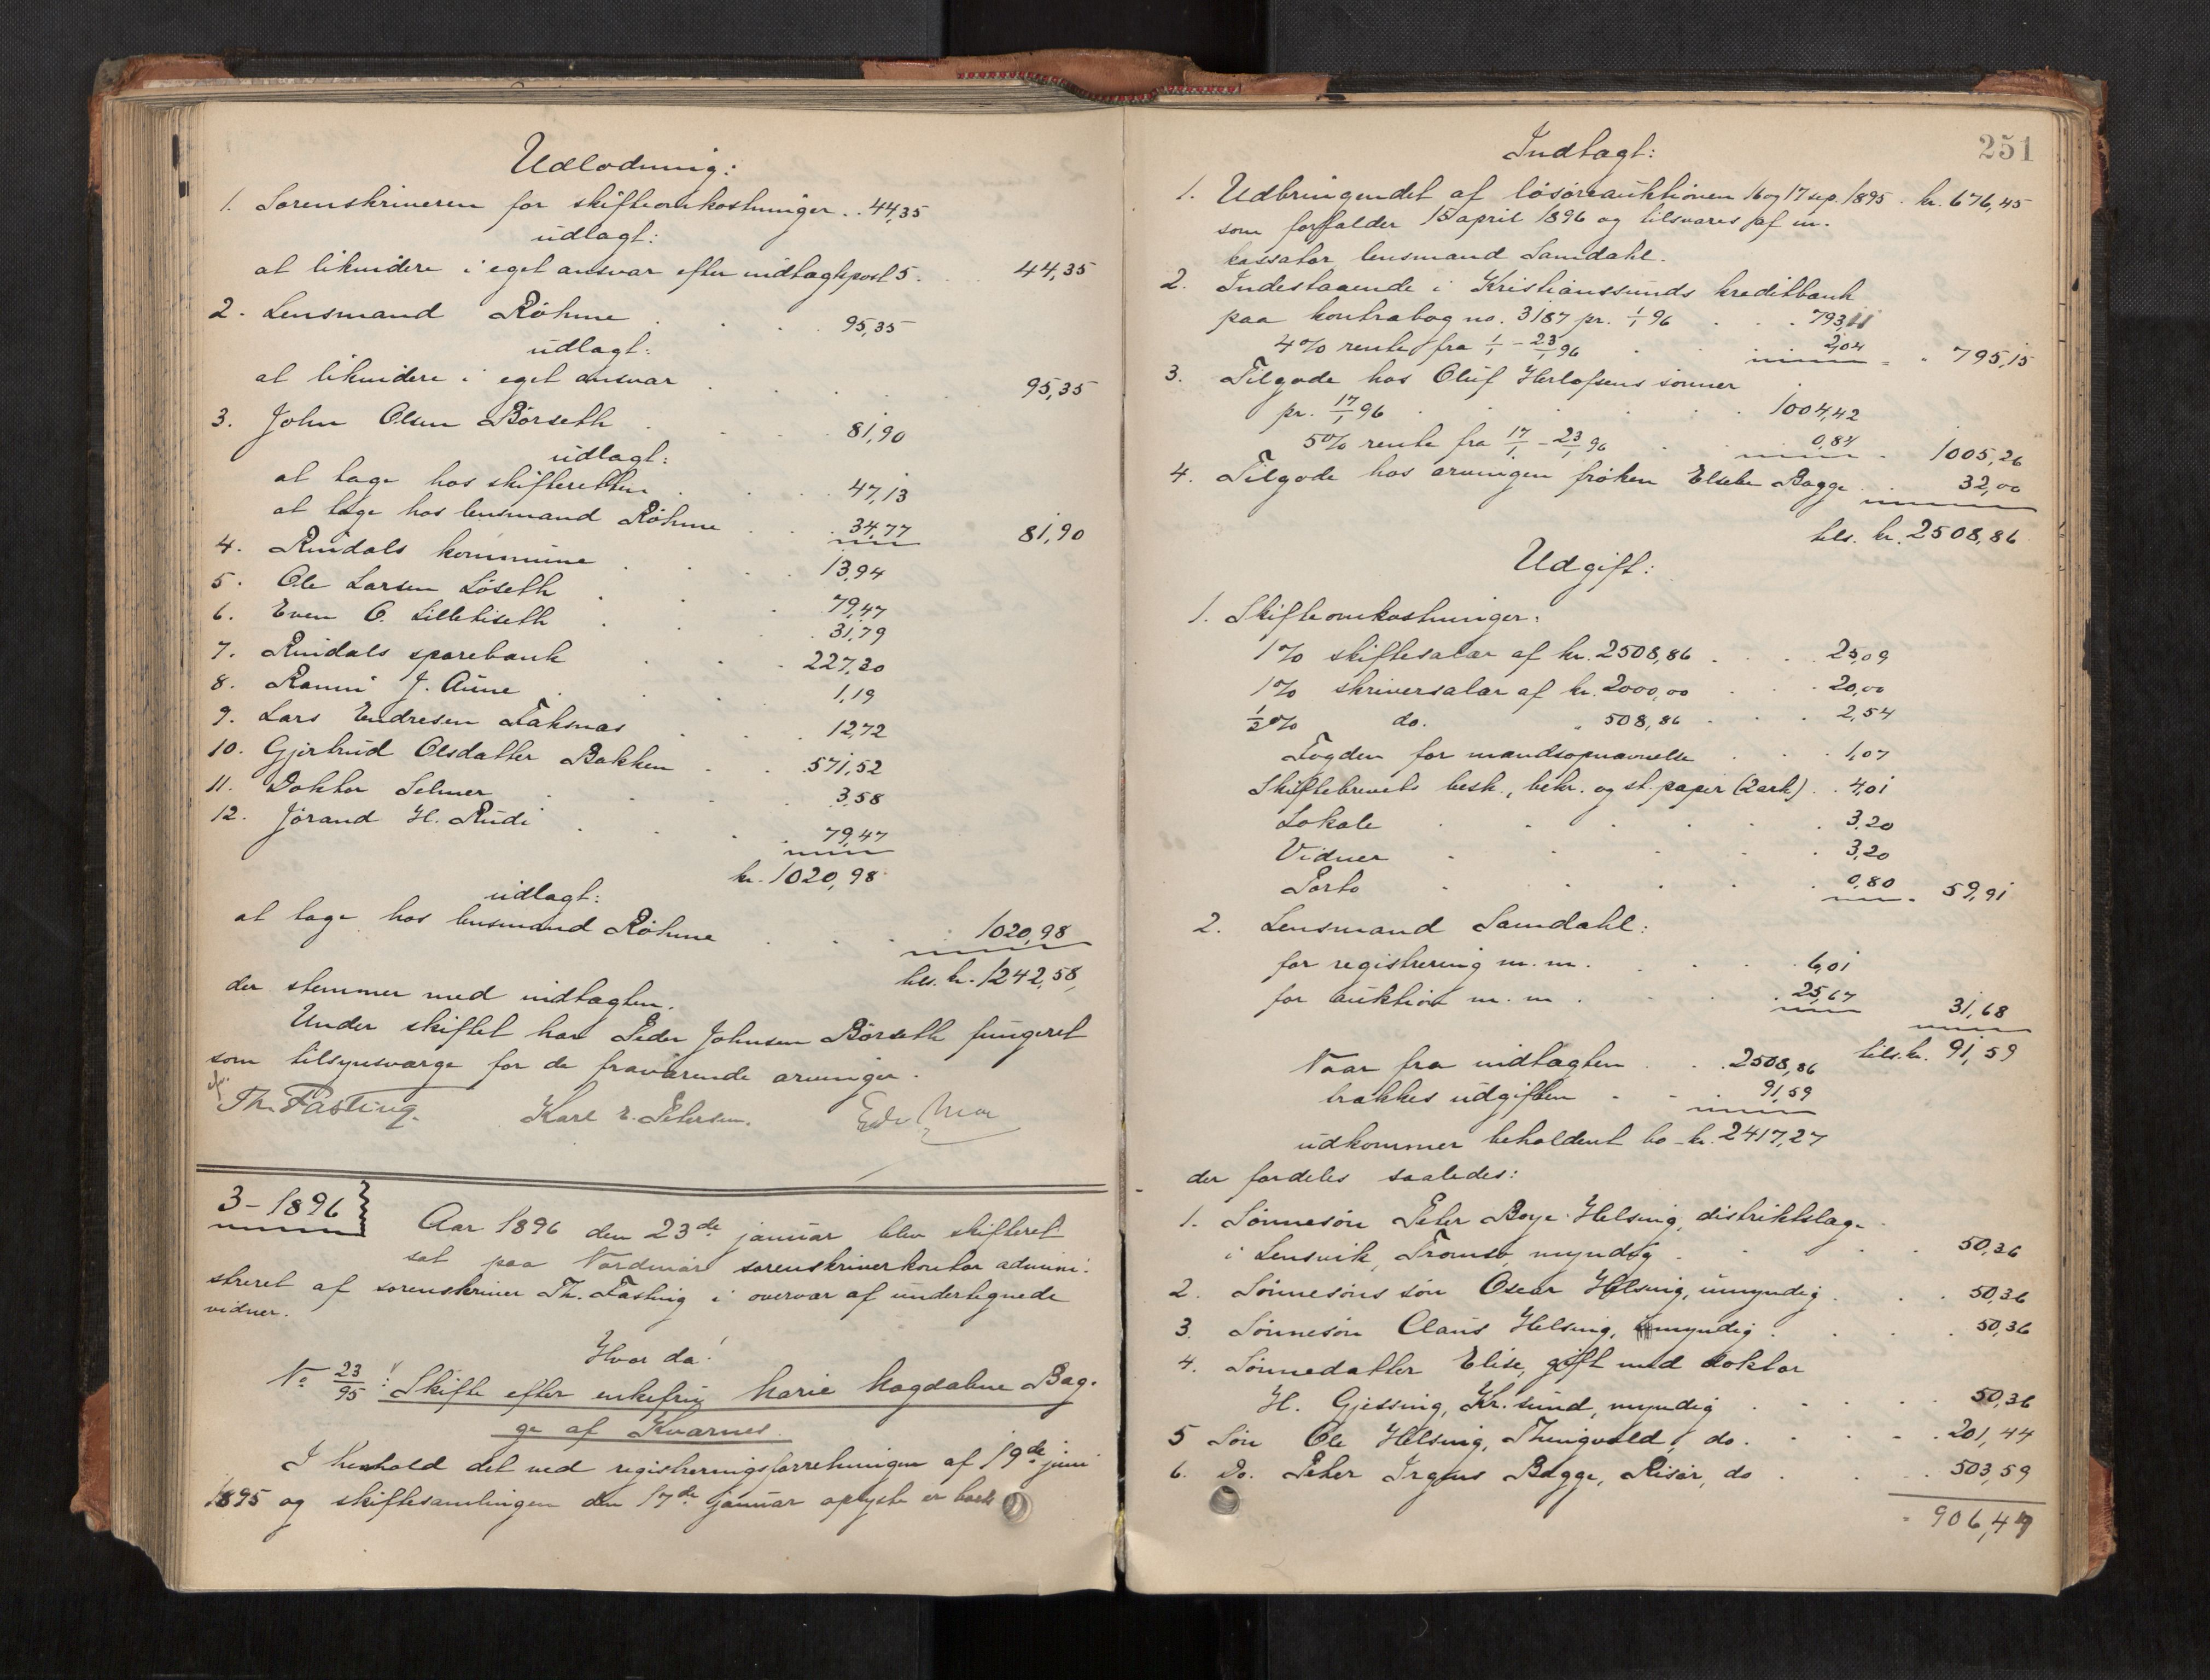 Udlodning:
1. Sorenskriveren for skifteomkostninger . . 44,35
udlagt:
at likvidere i eget ansvar efter indtægtspost 5 . . 44,35
2. Lensmand Röhme . . . 95,35
udlagt:
at likvidere i eget ansvar . . . 95,35
3. John Olsen Börseth . . . 81,90
udlagt:
at tage hos skifteretten . . . 47,13
at tage hos lensmand Röhme . . 34,77 81,90
4. Rindals kommune . . . 13,94
5. Ole Larsen Löseth . . . 79,47
6. Even O. Lilleliseth . . . 31,79
7. Rindals sparebank . . . 227,30
8. Ranni J. Aune . . . 1,19
9. Lars Endresen Taksnæs . . . 12,72
10. Gjertrud Olsdatter Bakken . . . 571,52
11. Doktor Selmer . . . 3,58
12. Jörand H. Rudi . . . 79,47
kr. 1020,98
udlagt:
at tage hos lensmand Röhme . . . 1020,98
tils. kr. 1242,58,
der stemmer med indtægten.
Under skiftet har Peder Johnsen Börseth fungeret
som tilsynsværge for de fraværende arvinger.
Th. Fasting. Karl E. Petersen.
3-1896
Aar 1896 den 23de januar blev skifteret
sat paa Nordmör sorenskriverkontor admini-
streret af sorenskriver Th. Fasting i overvær af undertegnede
vidner.
Hvor da:
No 23/95: Skifte efter enkefru Marie Magdalene Bag-
ge af Kværnes.
I henhold det ved registreringsforretningen af 19de juni
1895 og skiftesamlingen den 17de januar oplyste er boets
251
Indtægt:
1. Udbringendet af lösöreauktionen 16 og 17 sep. 1895 . kr. 676,45
som forfalder 15 april 1896 og tilsvares af in-
kassator lensmand Samdahl.
2. Indestaaende i Kristianssunds kreditbank
paa kontrabog no. 3187 pr. 1/1 96 . . . 793,11
4% rente fra 1/1 - 23/1 96 . . 2,04 - " 795,15
3. Tilgode hos Oluf Herlofsens sönner
pr. 17/1 96 . . . 1004,42
5% rente fra 17/1 - 23/1 96 . . 0,84 . 1005,26
4. Tilgode hos arvingen fröken Elsebe Bagge . . 32,00
tils. kr. 2508,86
Udgift:
1. Skifteomkostninger:
1% skiftesalær af kr. 2508,86 . . . 25,09
1% skriversalær af kr. 2000,00 . . . 20,00
1/2% do. " 508,86 . . . 2,54
Fogden for mandsopnævnelse . . . 1,07
Skiftebrevets besk., bekr. og st. papir (2 ark) . . 4,01
Lokale . . . 3,20
Vidner . . . 3,20
Porto . . . 0,80 . 59,91
2. Lensmand Samdahl:
for registrering m. m. . . . 6,01
for auktion m. m. . . . 25,67 31,68
tils. kr. 91,59
Naar fra indtægten . . 2508,86
trækkes udgiften - - 91,59
udkommer beholdent bo - kr. 2417,27
der fordeles saaledes:
1. Sönnesön Peter Boye Helsing, distriktslæge
i Lensvik, Tromsö, myndig . . . 50,36
2. Sönnesöns sön Oscar Helsing, umyndig . . . 50,36
3. Sönnesön Claus Helsing, myndig . . . 50,36
4. Sönnedatter Elise, gift med doktor
H. Gjessing, Kr.sund, myndig . . . 50,36
5 Sön Ole Helsing, Thingvold, do. . . . 201,44
6. Do. Peter Irgens Bagge, Risör, do . . . 503,59
906,47